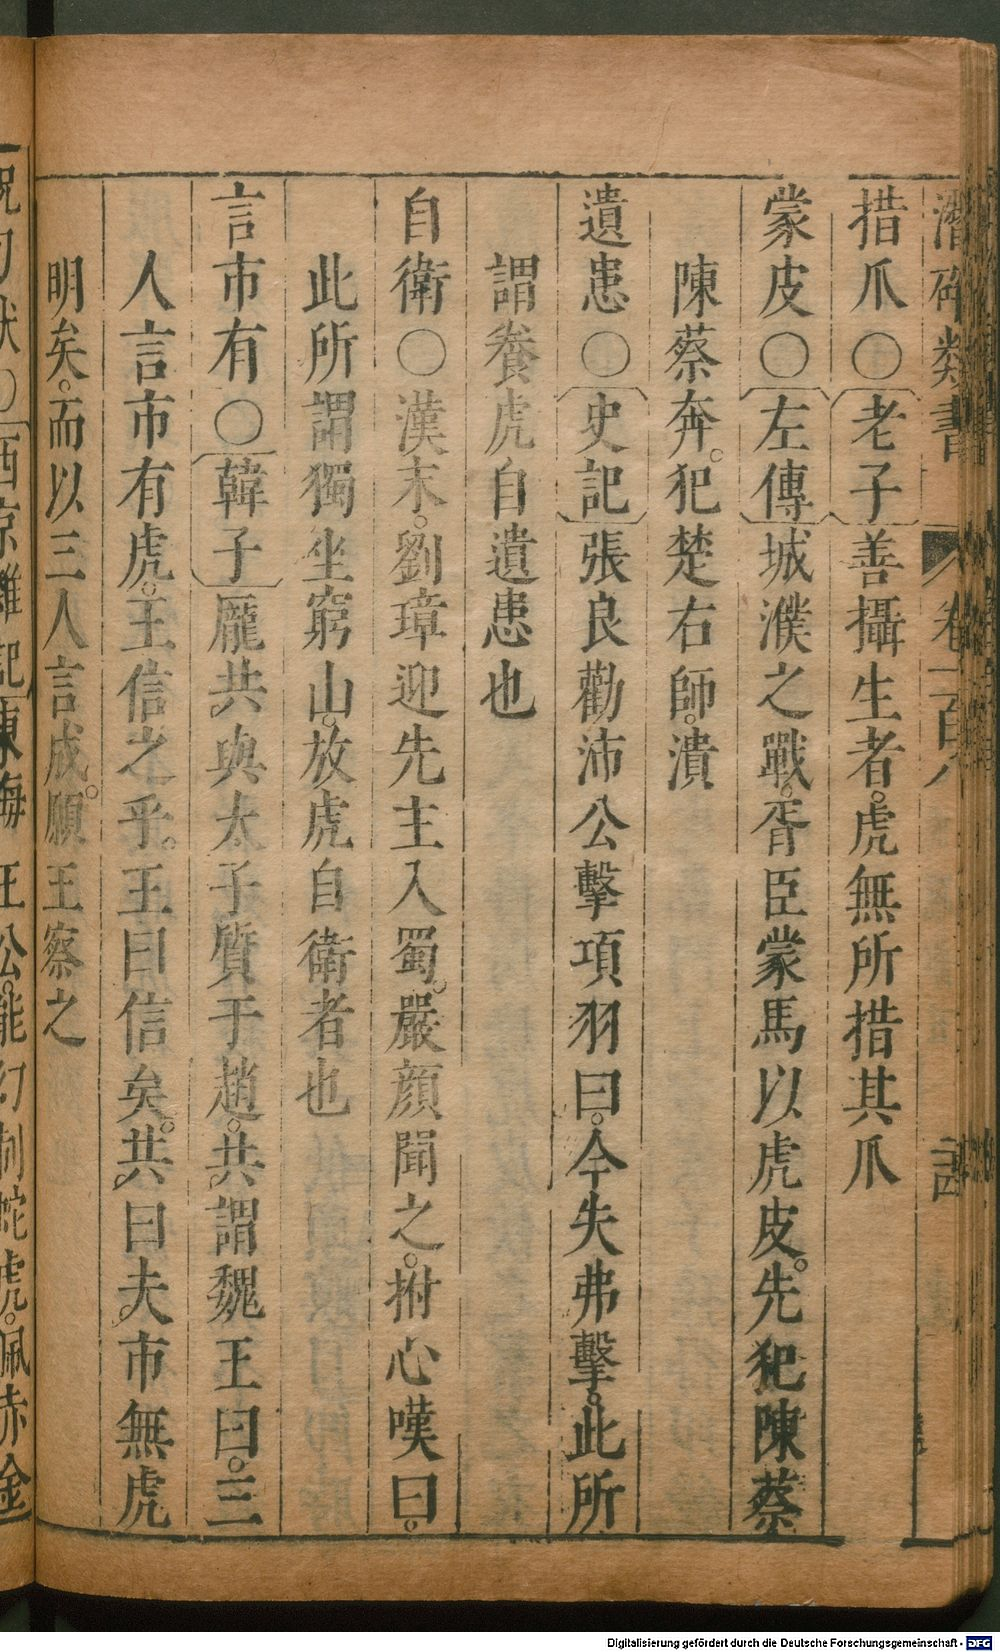 潛確類書
卷一百八
措爪○老子善攝生者。虎無所措其爪
蒙皮○左傳城濮之戰。胥臣蒙馬以虎皮。先犯陳蔡
陳蔡奔。犯楚右師。潰
遺患○史記張良勸沛公擊項羽曰。今失弗擊。此所
謂養虎自遺患也
自衛○漢末。劉璋迎先主入蜀。嚴顏聞之。拊心嘆曰。
此所謂獨坐窮山。放虎自衛者也
言市有○韓子龐共。與太子質于趙。共。謂魏王曰。三
人言市有虎。王信之乎。王曰信矣。共。曰夫。市無虎
明矣。而以三人言成。願王察之
○西京雜記東海王公。能幻制蛇虎。佩赤金
Digitalisierung gefördert durch die Deutsche Forschungsgemeinschaft - DFG